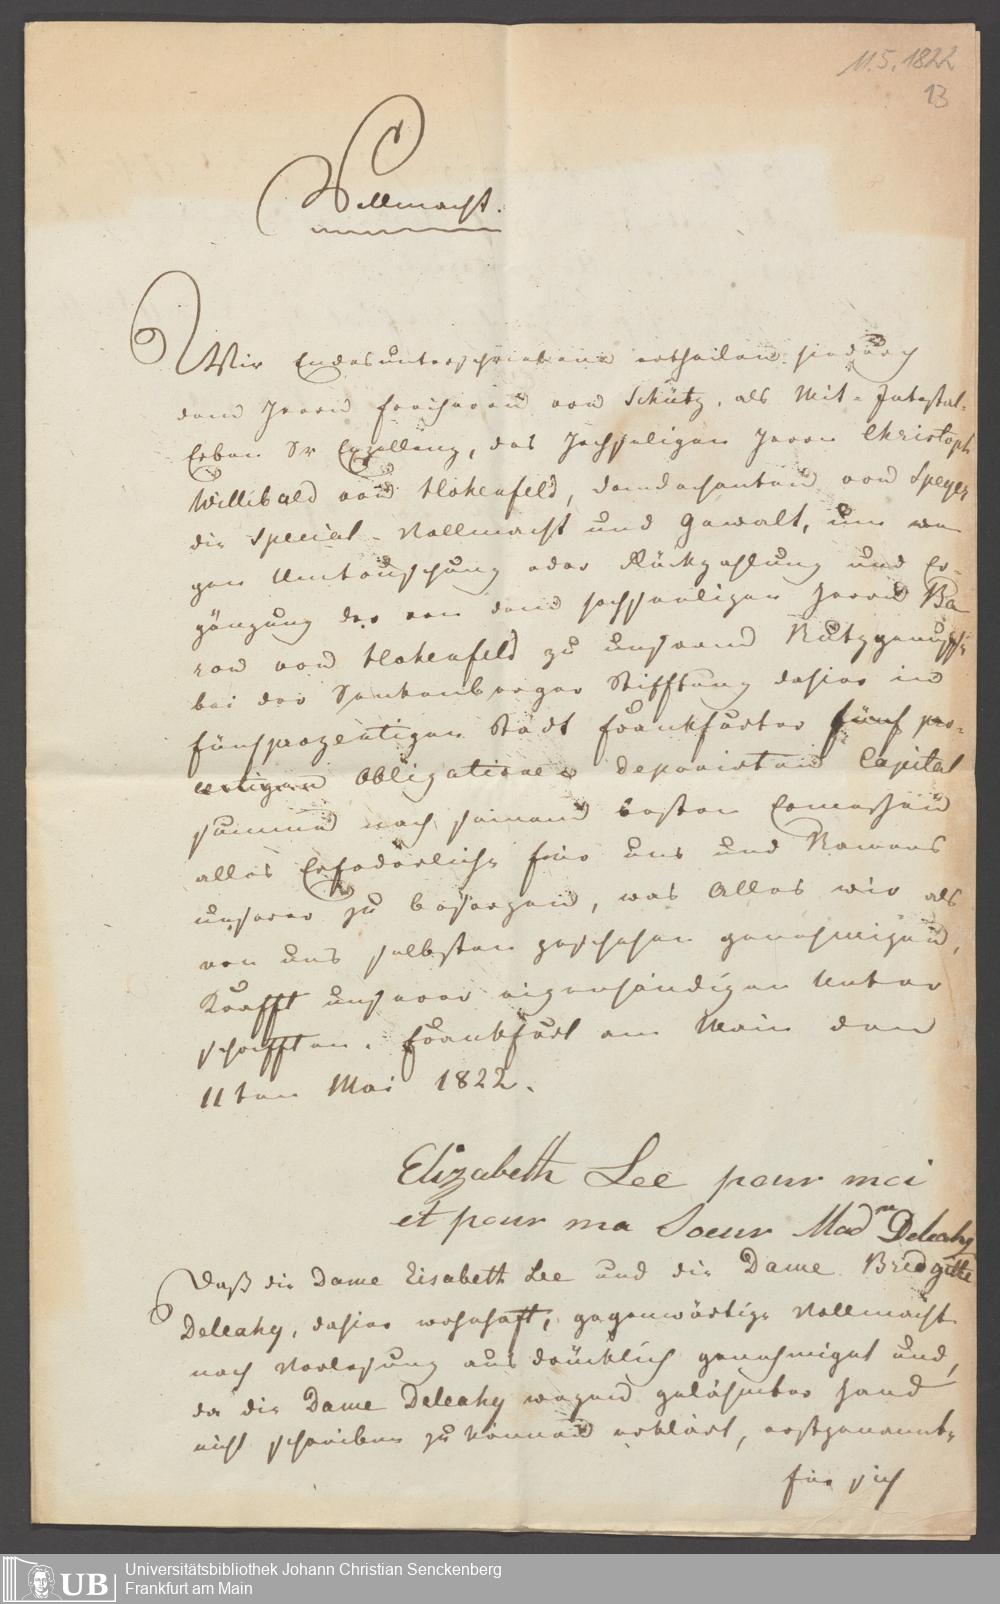 11.5.1822
13
Vollmacht.
Wir Endesunterschriebene ertheilen hiedurch
dem Herrn Freiherrn von Schütz, als Mit-Intestat-
Erben Sr Exzellenz, des Hochseligen Herrn Christoph
Willibald von Hohenfeld, Domdechanten von Speyer
die Special-Vollmacht und Gewalt, um we
gen Umtauschung oder Rückzahlung und Er-
gänzung der von dem hochseeligen Herrn Ba
ron von Hohenfeld zu unserem Nutzgenusse
bei der Senkenberger Stifftung dahier in
fünfprozentigen Stadt Frankfurter fünf pro-
centigen Obligationen deponirten Capital
summe nach seinem besten Ermessen
alles Erfoderliche für uns und Namens
unserer zu besorgen, was Alles wir als
von uns selbsten geschehen genehmigen,
Krafft unserer eigenhändigen Unter
schrifften. Frankfurt am Main den
11ten Mai 1822.
Elizabeth Lee pour moi
et pour ma Soeur Madme Deleahy
Daß die Dame Elisabeth Lee und die Dame Bredgitte
Deleahy, dahier wohnhaft, gegenwärtige Vollmacht
nach Vorlesung ausdrücklich genehmiget und,
da die Dame Deleahy wegen gelähmter Hand
nicht schreiben zu können erklärt, erstgenannte
für sich
UB
Universitätsbibliothek Johann Christian Senckenberg
Frankfurt am Main